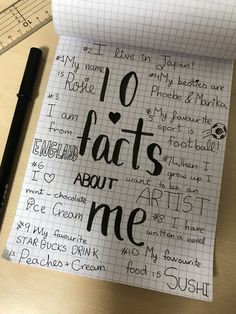 #2 I live in Japan!
#1 My name
is Rosie
#4 My besties are
Phoebe & Marika
10
facts
ABOUT
me
#3
I am
from
ENGLAND
#5 My favourite
sport is
football!
#6
I ♡
mint-chocolate
Ice Cream
#7 When I
grow up I
want to be an
ARTIST
#8 I have
written a novel
#9 My favourite
STARBUCKS DRINK
is Peaches + Cream
#10 My favourite
food is SUSHI